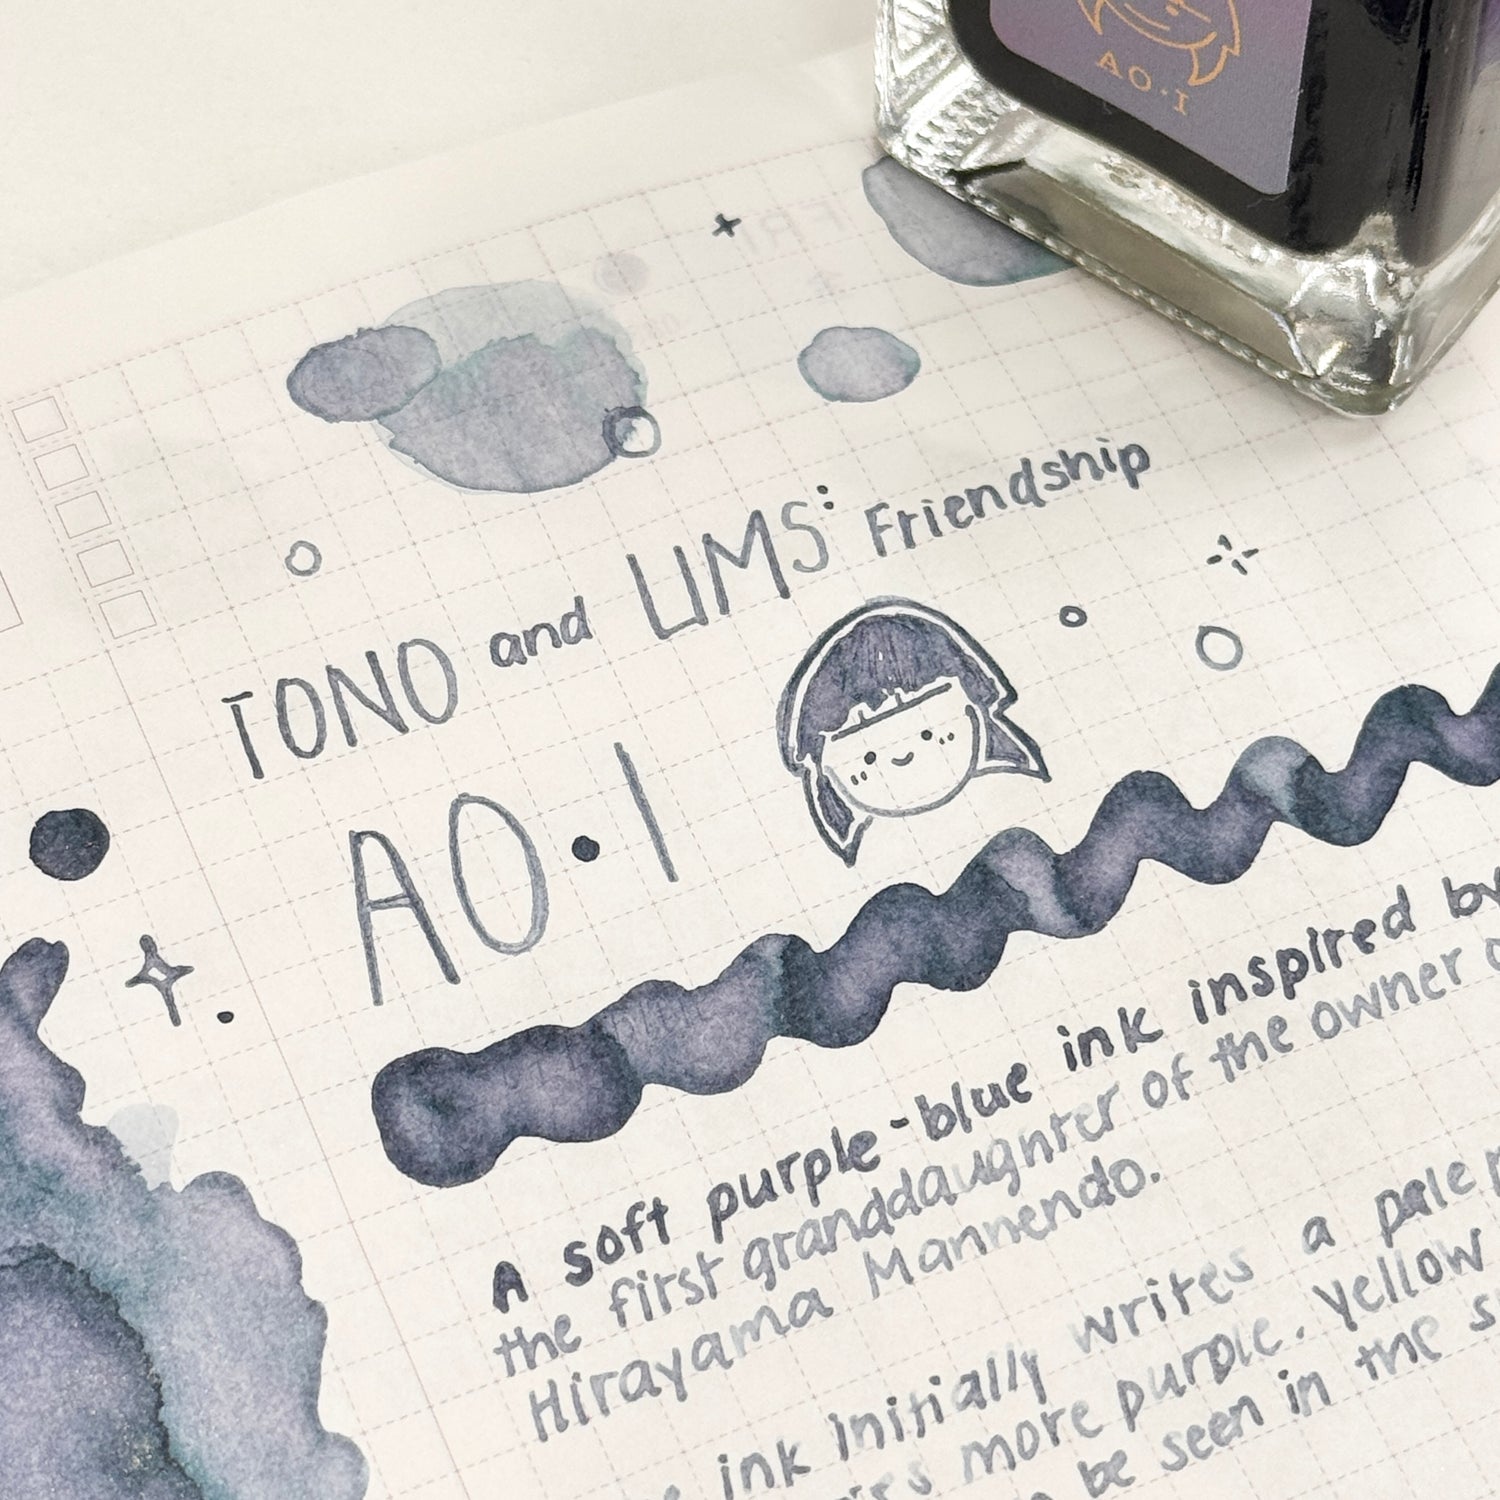 AO·I
FRI
TONO and LIMS: Friendship
AO·I
A soft purple-blue ink inspired by
the first granddaughter of the owner
Hirayama Mannendo.
ink initially writes a pale
more purple. Yellow
be seen in the